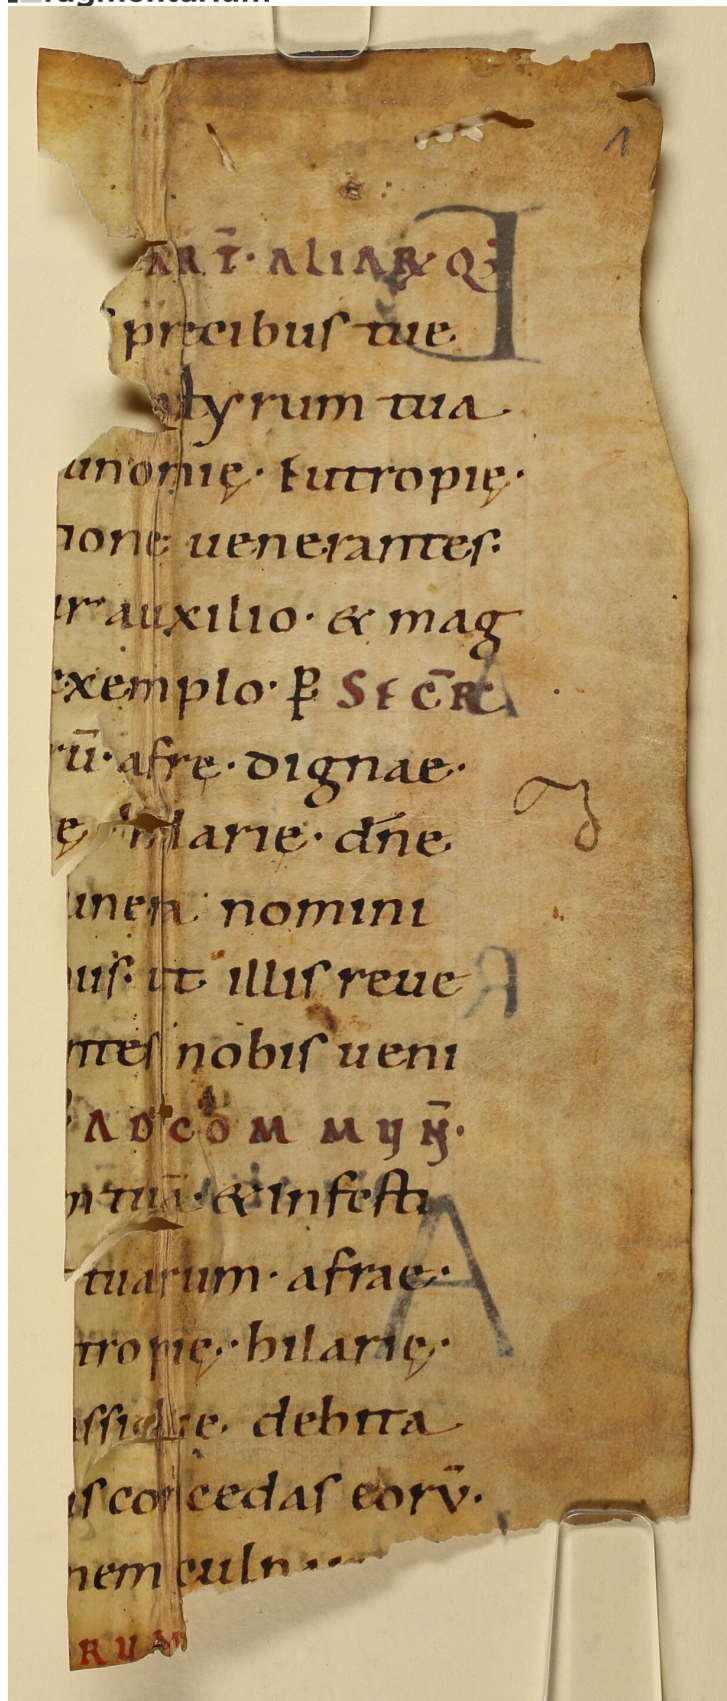 ART̄· ALIARQ;
precibus tue
tyrum tua
unomię· Eutropię·
ione uenerantes·
ur auxilio· & mag
exemplo· ꝑ SECR̄
rū· afre· dignae·
ę hilarie· dn̄e
unera nomini
us· ut illis reue
ntes nobis ueni
AD COMMUN̄·
m tuā· & infesti
tuarum· afrae·
tropię· hilarię·
assidue debita
is concedas eorū·
nem
RUM